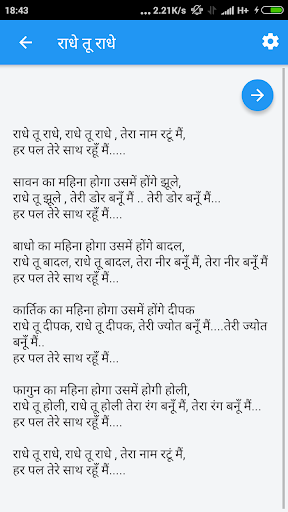 18:43 ... 2.21K/s H+
राधे तू राधे
राधे तू राधे, राधे तू राधे , तेरा नाम रटूं मैं,
हर पल तेरे साथ रहूँ मैं.....
सावन का महिना होगा उसमें होंगे झूले,
राधे तू झूले , तेरी डोर बनूँ मैं .. तेरी डोर बनूँ मैं...
हर पल तेरे साथ रहूँ मैं....
बाधो का महिना होगा उसमें होंगे बादल,
राधे तू बादल, राधे तू बादल, तेरा नीर बनूँ मैं, तेरा नीर बनूँ मैं
हर पल तेरे साथ रहूँ मैं...
कार्तिक का महिना होगा उसमें होंगे दीपक
राधे तू दीपक, राधे तू दीपक, तेरी ज्योत बनूँ मैं....तेरी ज्योत
बनूँ मैं..
हर पल तेरे साथ रहूँ मैं....
फागुन का महिना होगा उसमें होगी होली,
राधे तू होली, राधे तू होली तेरा रंग बनूँ मैं, तेरा रंग बनूँ मैं...
हर पल तेरे साथ रहूँ मैं....
राधे तू राधे, राधे तू राधे , तेरा नाम रटूं मैं,
हर पल तेरे साथ रहूँ मैं.....